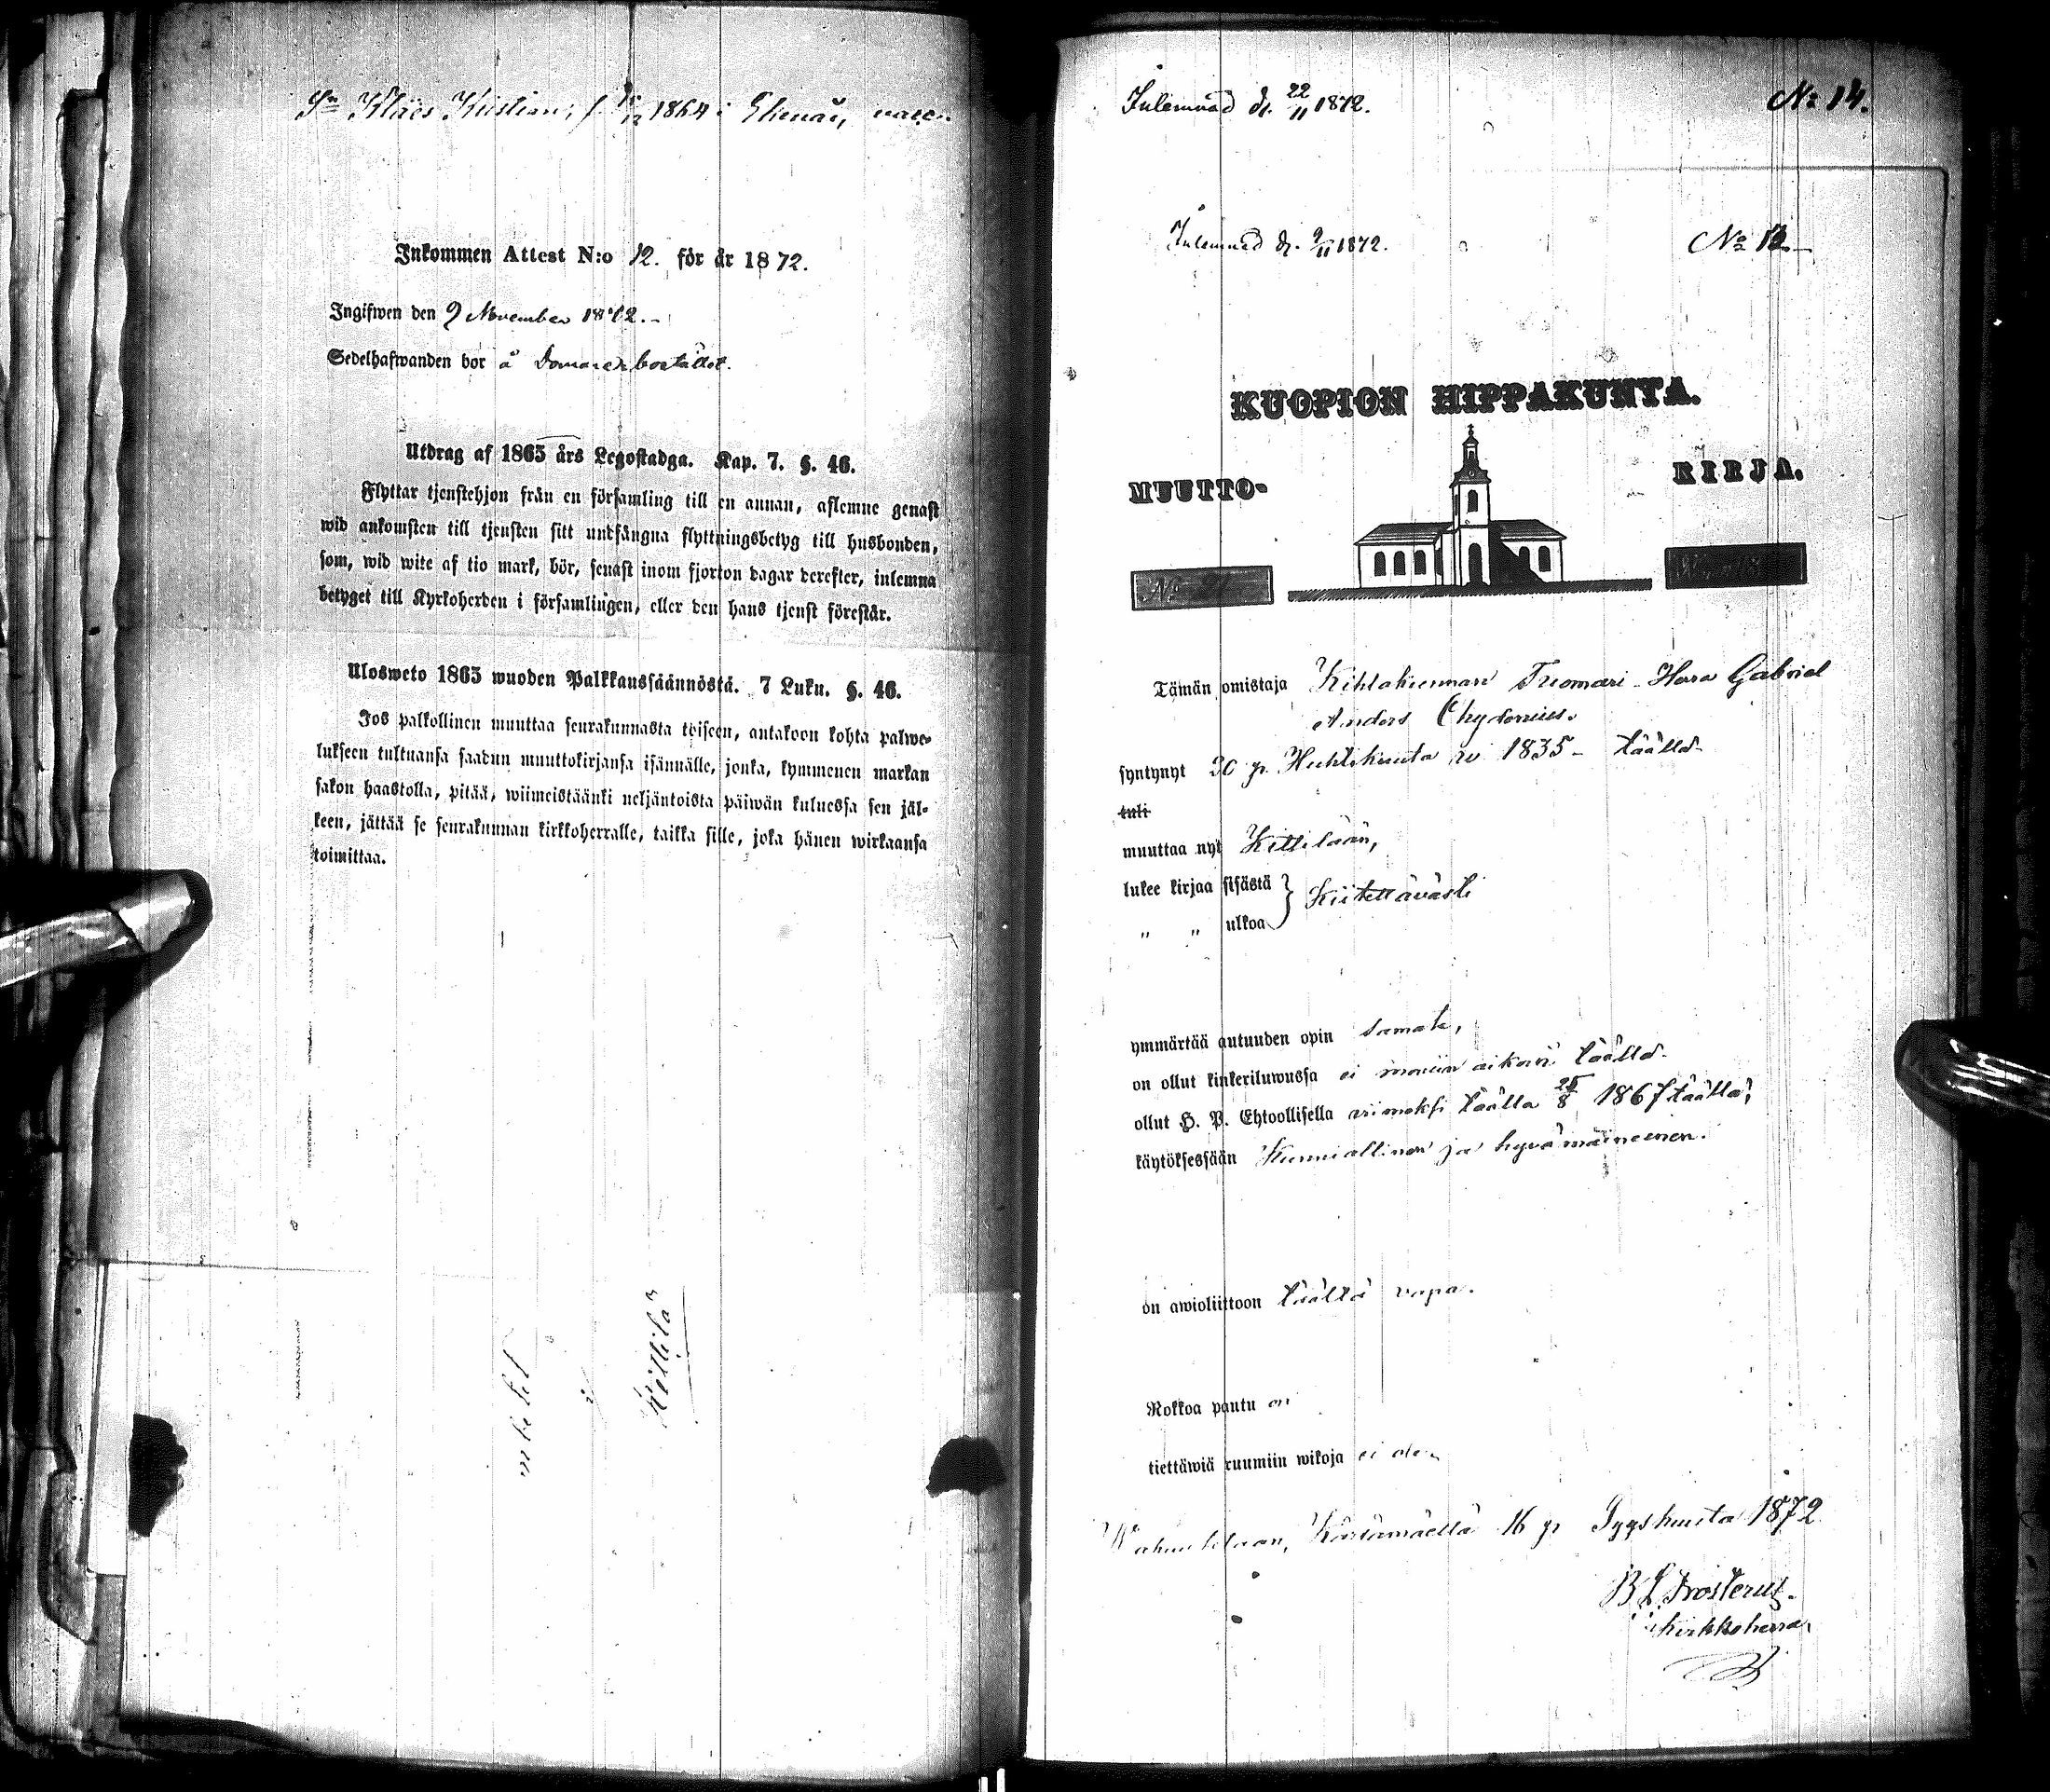 Sn Klaës Kristian, f. 12 1864 i Ekenäs, vacc.
Inkommen Attest N:o 12. för år 1872.
Ingifwen den 9 November 1872.
Sedelhafwanden bor å Domarebostället.
Utdrag af 1865 års Legostadga. Kap. 7. §. 46.
Flyttar tjenstehjon från en församling till en annan, aflemne genast
wid ankomsten till tjensten sitt undfångna flyttningsbetyg till husbonden,
som, wid wite af tio mark, bör, senast inom fjorton dagar derefter, inlemna
betyget till Kyrkoherden i församlingen, eller den hans tjenst förestår.
Ulosweto 1865 wuoden Palkkaussäännöstä. 7 Luku. §. 46.
Jos palkollinen muuttaa seurakunnasta toiseen, antakoon kohta palwe-
lukseen tultuansa saadun muuttokirjansa isännälle, jonka, kymmenen markan
sakon haastolla, pitää, wiimeistäänki neljäntoista päiwän kuluessa sen jäl-
keen, jättää se seurakunnan kirkkoherralle, taikka sille, joka hänen wirkaansa
toimittaa.
i
Kittilä
Inlemnad d. 22/11 1872.
No 14.
Inlemnad d. 9/11 1872.
No 12
KUOPION HIPPAKUNTA.
MUUTTO-
KIRJA.
No 21
Tämän omistaja Kihlakunnan Tuomari Herra Gabriel
Anders Chydenius.
syntynyt 30 p. Huhtikuuta w 1835 - täällä.
tuli
muuttaa nyt Kittilään,
lukee kirjaa sisästä } Kiitettäwästi
" " ulkoa
ymmärtää autuuden opin samate,
on ollut kinkeriluwussa ei moniin aikoin täällä.
ollut H. P. Ehtoollisella wiimeksi täällä 25/8 1867 täällä;
käytöksessään Kunniallinen ja hywämaineinen.
on awioliittoon täältä wapa.
Rokkoa pantu on
tiettäwiä ruumiin wikoja ei ole
Wakuutetaan, Kärsämäellä 16 p. Syyskuuta 1872
B. L. Frosterus.
Kirkkoherra.